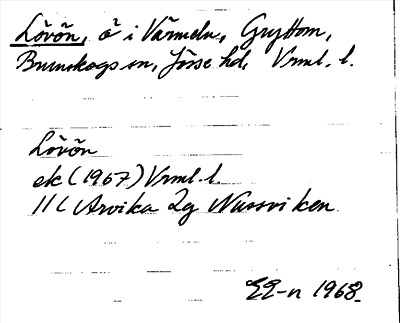 Lövön, ö i Värmeln, Gryttom,
Brunskogs sn, Jösse hd, Vrml. l.
Lövön
ek (1967) Vrml. l.
11C Arvika 2g Nussviken
EE-n 1968.